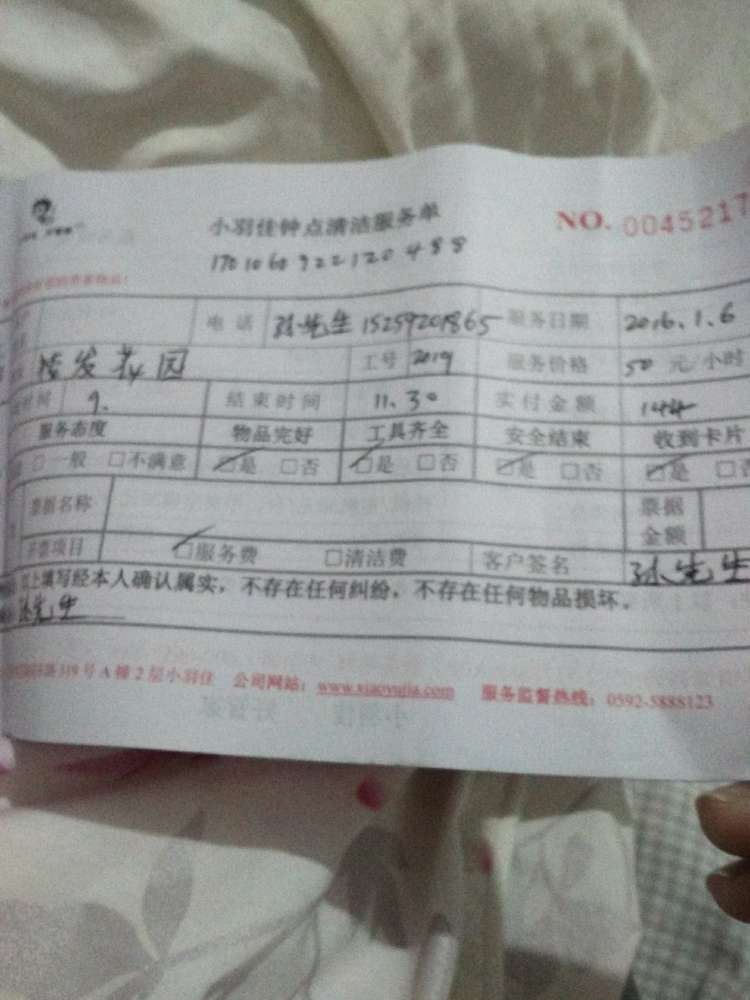 小羽佳钟点清洁服务单 NO. 0045217
170106092212048 8
电话 孙先生 15259201865 服务日期 2016.1.6
花园 工号 2019 服务价格 50 元/小时
时间 9. 结束时间 11.30 实付金额 144
服务态度 物品完好 工具齐全 安全结束 收到卡片
□一般 □不满意 □是 □否 □是 □否 □是 □否 □是 □否
票据名称 票据金额
开票项目 □服务费 □清洁费 客户签名 孙先生
以上填写经本人确认属实，不存在任何纠纷，不存在任何物品损坏。
孙先生
路319号A幢2层小羽佳 公司网站：www.xiaoyujia.com 服务监督热线：0592-5888123